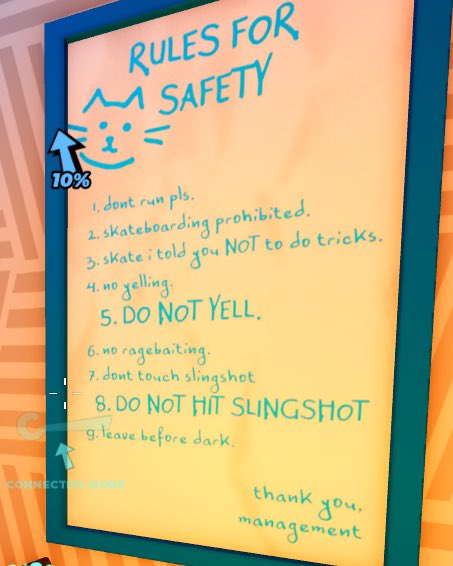 RULES FOR
SAFETY
10%
1. dont run pls.
2. skateboarding prohibited.
3. skate i told you NOT to do tricks.
4. no yelling.
5. DO NOT YELL.
6. no ragebaiting.
7. dont touch slingshot
8. DO NOT HIT SLINGSHOT
9. leave before dark.
thank you,
management